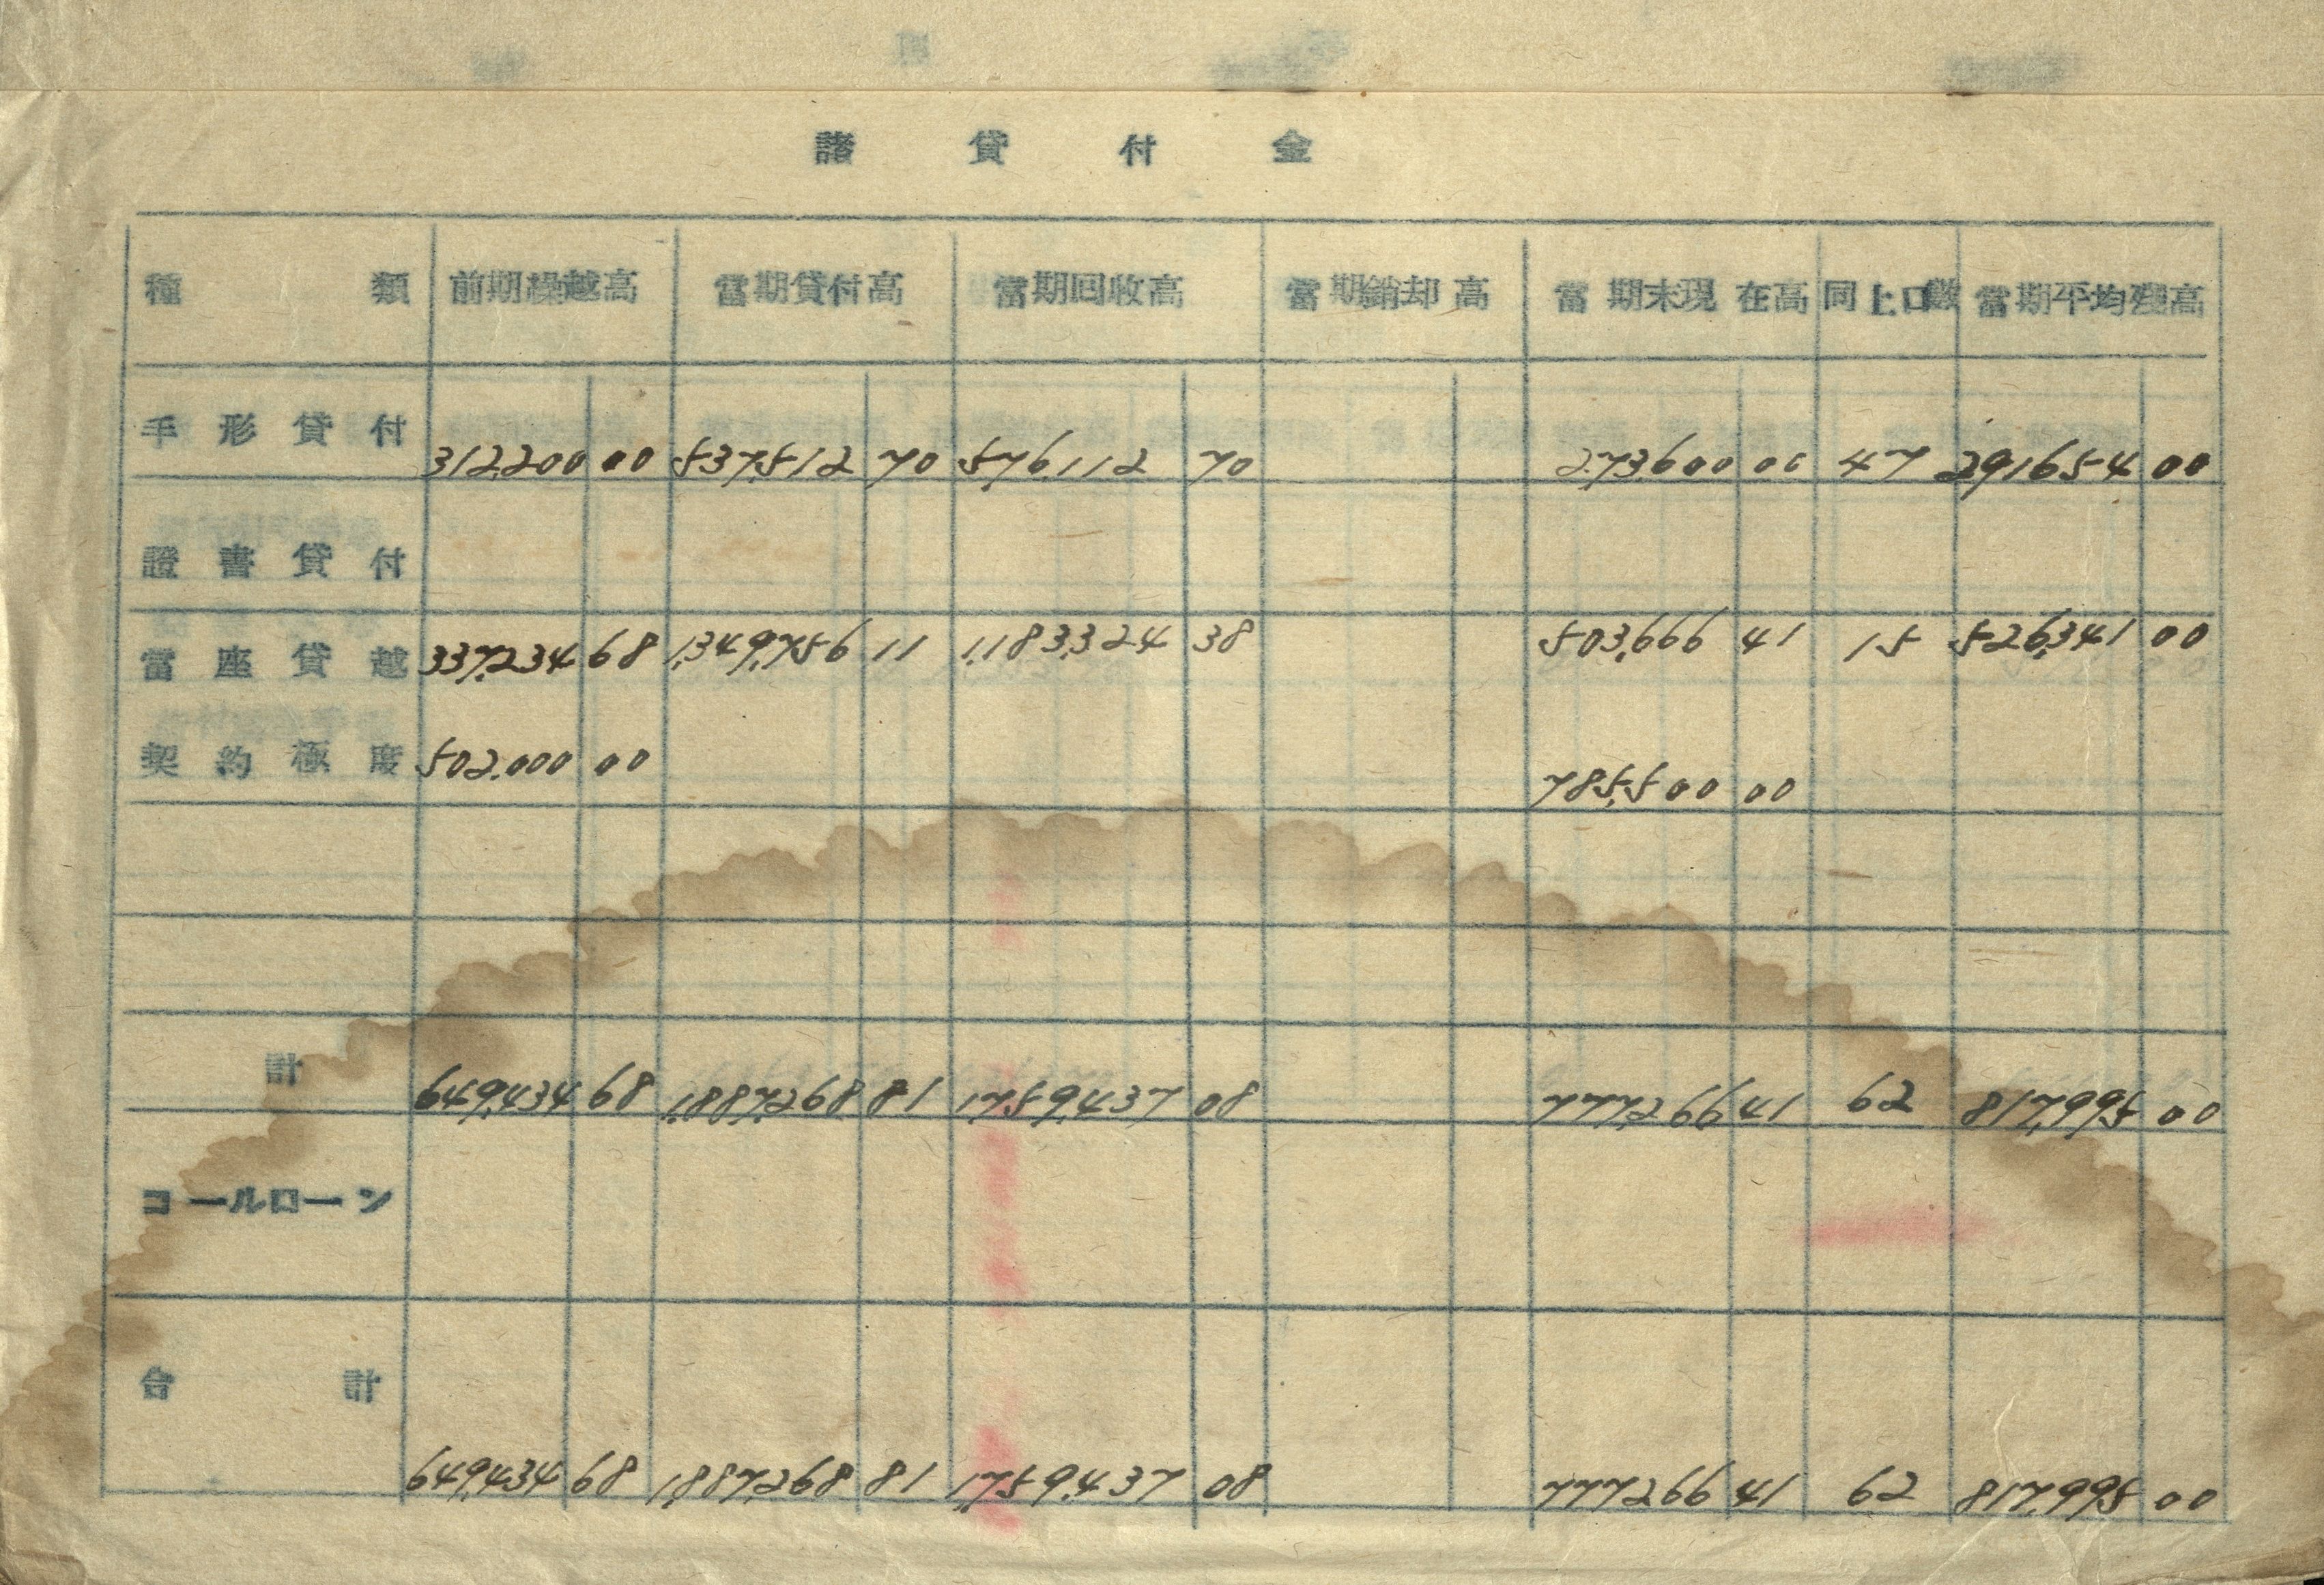 諸貸付金
種類 前期繰越高 當期貸付高 當期回收高 當期銷却高 當期末現在高 同上口數 當期平均殘高
手形貸付 312,200 00 537,512 70 576,112 70 273,600 00 47 291,654 00
證書貸付
當座貸越 337,234 68 1,349,756 11 1,183,324 38 503,666 41 15 526,341 00
契約極度 502,000 00 785,500 00
計 649,434 68 1,887,268 81 1,759,437 08 777,266 41 62 817,995 00
コールローン
合計
649,434 68 1,887,268 81 1,759,437 08 777,266 41 62 817,995 00